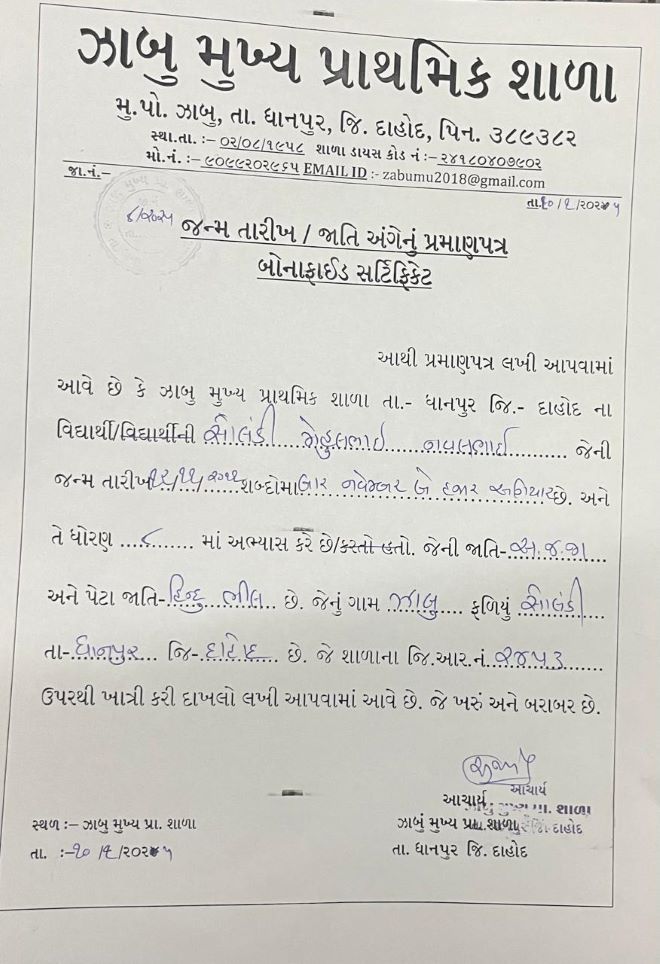 ઝાબુ મુખ્ય પ્રાથમિક શાળા
મુ.પો. ઝાબુ, તા. ધાનપુર, જિ. દાહોદ, પિન. ૩૮૯૩૮૨
સ્થા.તા. :– ૦૨/૦૮/૧૯૫૮ શાળા ડાયસ કોડ નં :–૨૪૧૮૦૪૦૭૯૦૨
મો.નં. :–૯૦૯૯૨૦૨૯૬૫ EMAIL ID :- zabumu2018@gmail.com
જા.નં.– તા.૧૦/૬/૨૦૨૫
૬/૨૦૨૫ જન્મ તારીખ / જાતિ અંગેનું પ્રમાણપત્ર
બોનાફાઈડ સર્ટિફિકેટ
આથી પ્રમાણપત્ર લખી આપવામાં
આવે છે કે ઝાબુ મુખ્ય પ્રાથમિક શાળા તા.- ધાનપુર જિ.- દાહોદ ના
વિદ્યાર્થી/વિદ્યાર્થીની સોલંકી મેહુલભાઇ નવલભાઇ જેની
જન્મ તારીખ ૧૨/૧૧/૨૦૧૧ શબ્દોમા બાર નવેમ્બર બે હજાર અગિયાર છે. અને
તે ધોરણ ૮ માં અભ્યાસ કરે છે/કરતો હતો. જેની જાતિ- અ.જ.જા
અને પેટા જાતિ- હિન્દુ ભીલ છે. જેનું ગામ ઝાબુ ફળિયું સોલંકી
તા- ધાનપુર જિ- દાહોદ છે. જે શાળાના જિ.આર.નં. ૨૪૫૩
ઉપરથી ખાત્રી કરી દાખલો લખી આપવામાં આવે છે. જે ખરું અને બરાબર છે.
આચાર્ય
આચાર્ય
સ્થળ :– ઝાબુ મુખ્ય પ્રા. શાળા ઝાબું મુખ્ય પ્રા. શાળા
તા. :–૧૦/૬/૨૦૨૫ તા. ધાનપુર જિ. દાહોદ